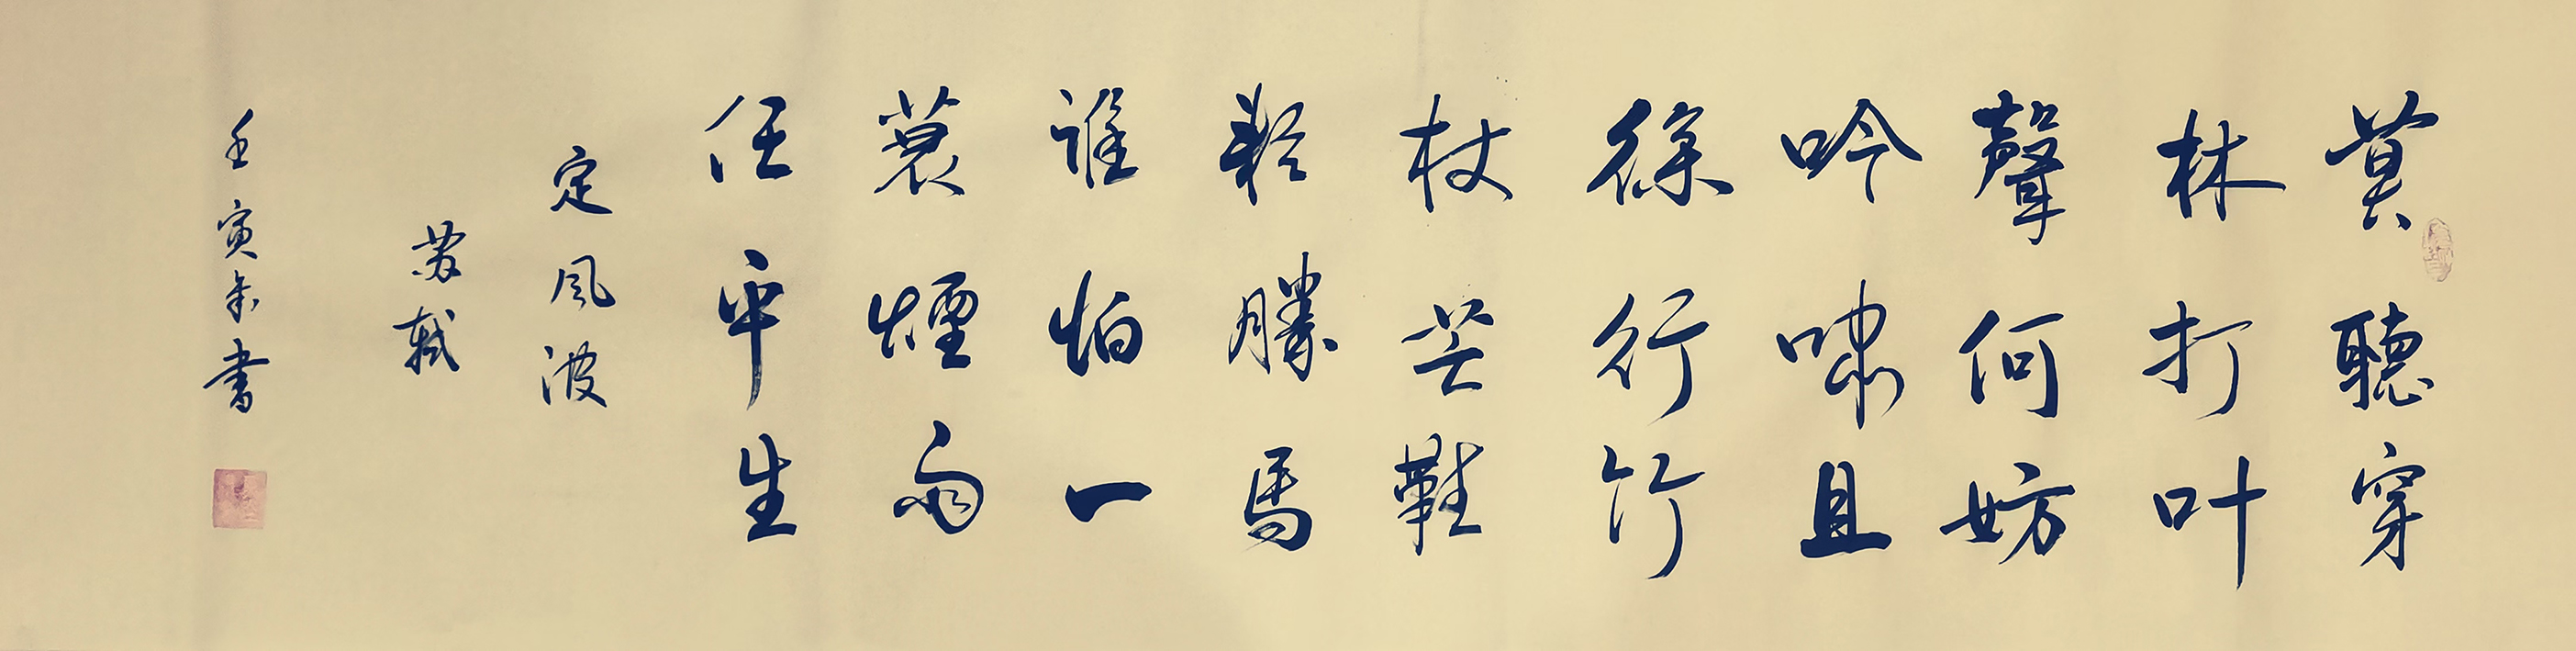 莫聽穿
林打叶
聲何妨
吟嘯且
徐行竹
杖芒鞋
輕勝馬
誰怕一
蓑煙雨
任平生
定风波
苏轼
壬寅年书